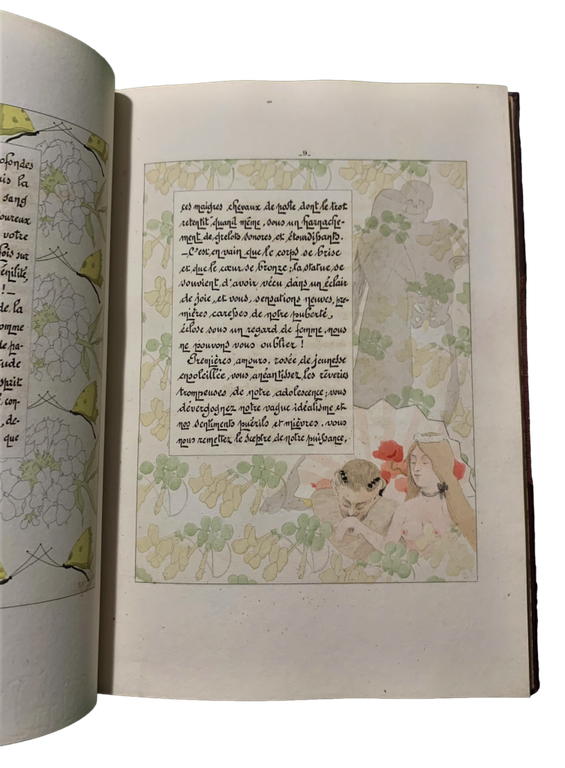 ofondes
is la
sang
oureux
votre
fois sur
énilité
! —
de la
omme
de pa-
tude
sprit
t con-
, de-
que
_9_
ces maigres chevaux de poste dont le trot
retentit, quand même, sous un harnache-
ment de grelots sonores et étourdissants.
— C'est en vain que le corps se brise
et que le cœur se bronze ; la statue se
souvient d'avoir vécu dans un éclair
de joie et vous, sensations neuves, pre-
mières caresses de notre puberté,
éclose sous un regard de femme, nous
ne pouvons vous oublier !
Premières amours, rosée de jeunesse
ensoleillée, vous anéantissez les rêveries
trompeuses de notre adolescence ; vous
dévergognez notre vague idéalisme et
nos sentiments puérils et mièvres, vous
nous remettez le sceptre de notre puissance,